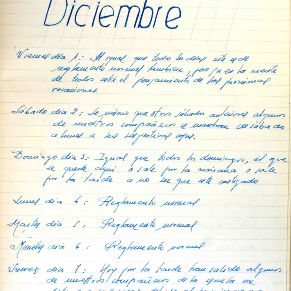 Diciembre
Viernes dia 1: Al igual que todos los dias este es de
reglamento normal tambien, pero ya en la mente
de todos está el pensamiento de las proximas
vacaciones
Sábado dia 2: Lo mismo que otros sábados anteriores algunos
de nuestros compañeros se marchan de sábado
a lunes a sus respectivas casas.
Domingo dia 3: Igual que todos los domingos, el que
se quede aquí o sale por la mañana o sale
por la tarde a no ser que este castigado
Lunes dia 4: Reglamento normal
Martes dia 5: Reglamento normal
Miercoles dia 6: Reglamento normal
Jueves dia 7: Hoy por la tarde han salido algunos
de nuestros compañeros de la